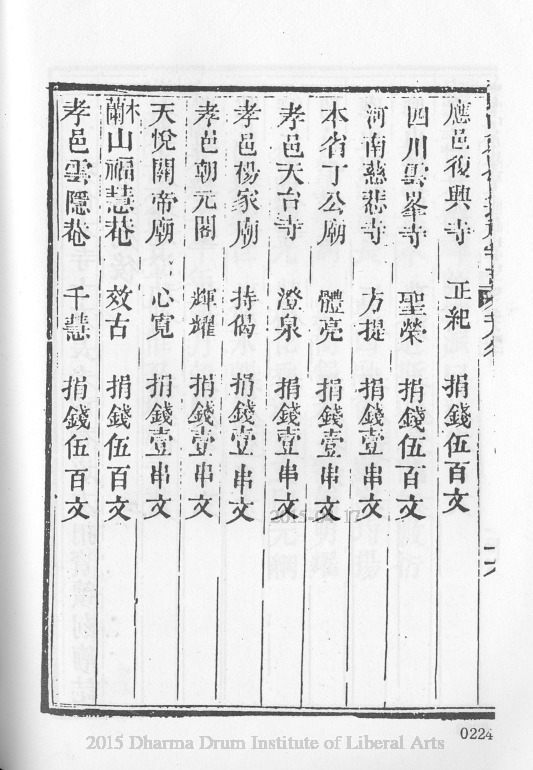 應邑復興寺 正紀 捐錢伍百文
四川雲峯寺 聖榮 捐錢伍百文
河南慈悲寺 方提 捐錢壹串文
本省丁公廟 體亮 捐錢壹串文
孝邑天台寺 澄泉 捐錢壹串文
孝邑楊家廟 持偈 捐錢壹串文
孝邑朝元閣 輝耀 捐錢壹串文
天悅關帝廟 心寬 捐錢壹串文
木蘭山福慧菴 效古 捐錢伍百文
孝邑雲隱菴 千慧 捐錢伍百文
2015-04-17
0224
2015 Dharma Drum Institute of Liberal Arts